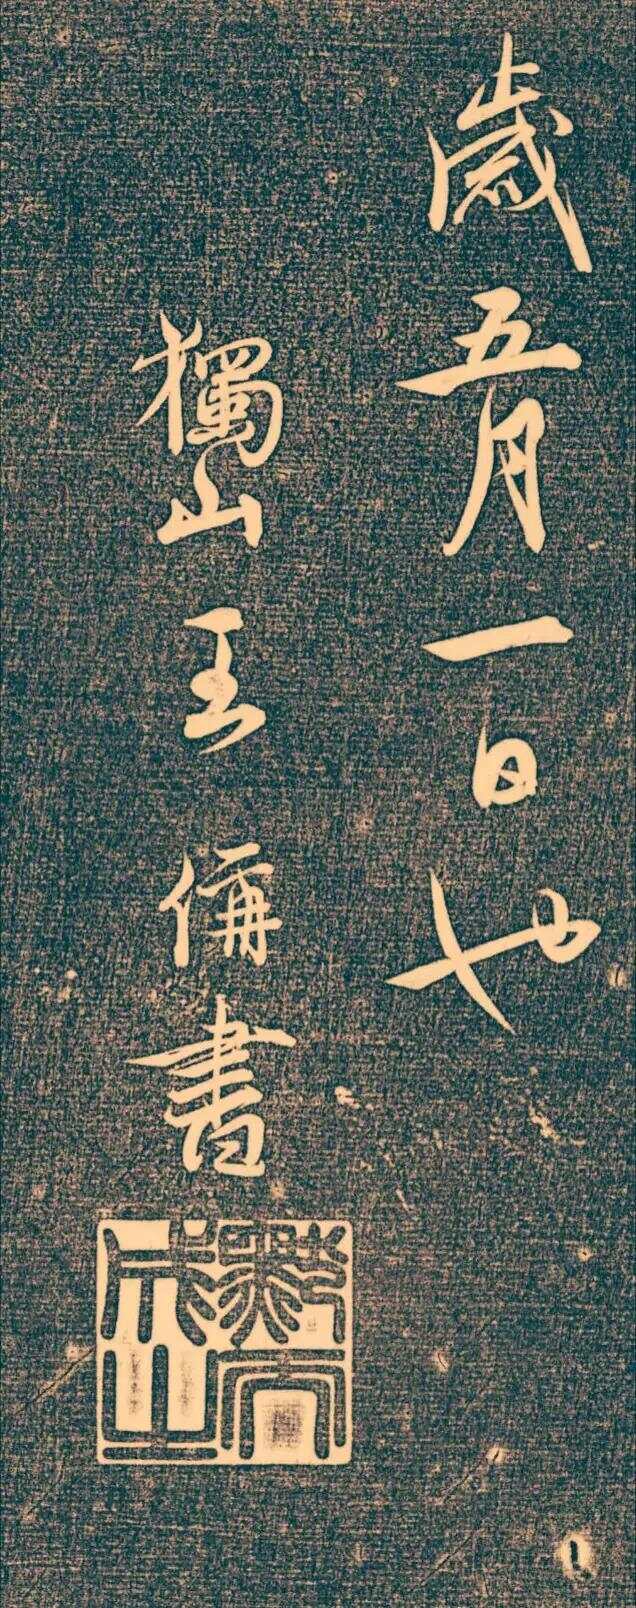 歲五月一日也
獨山王俻書